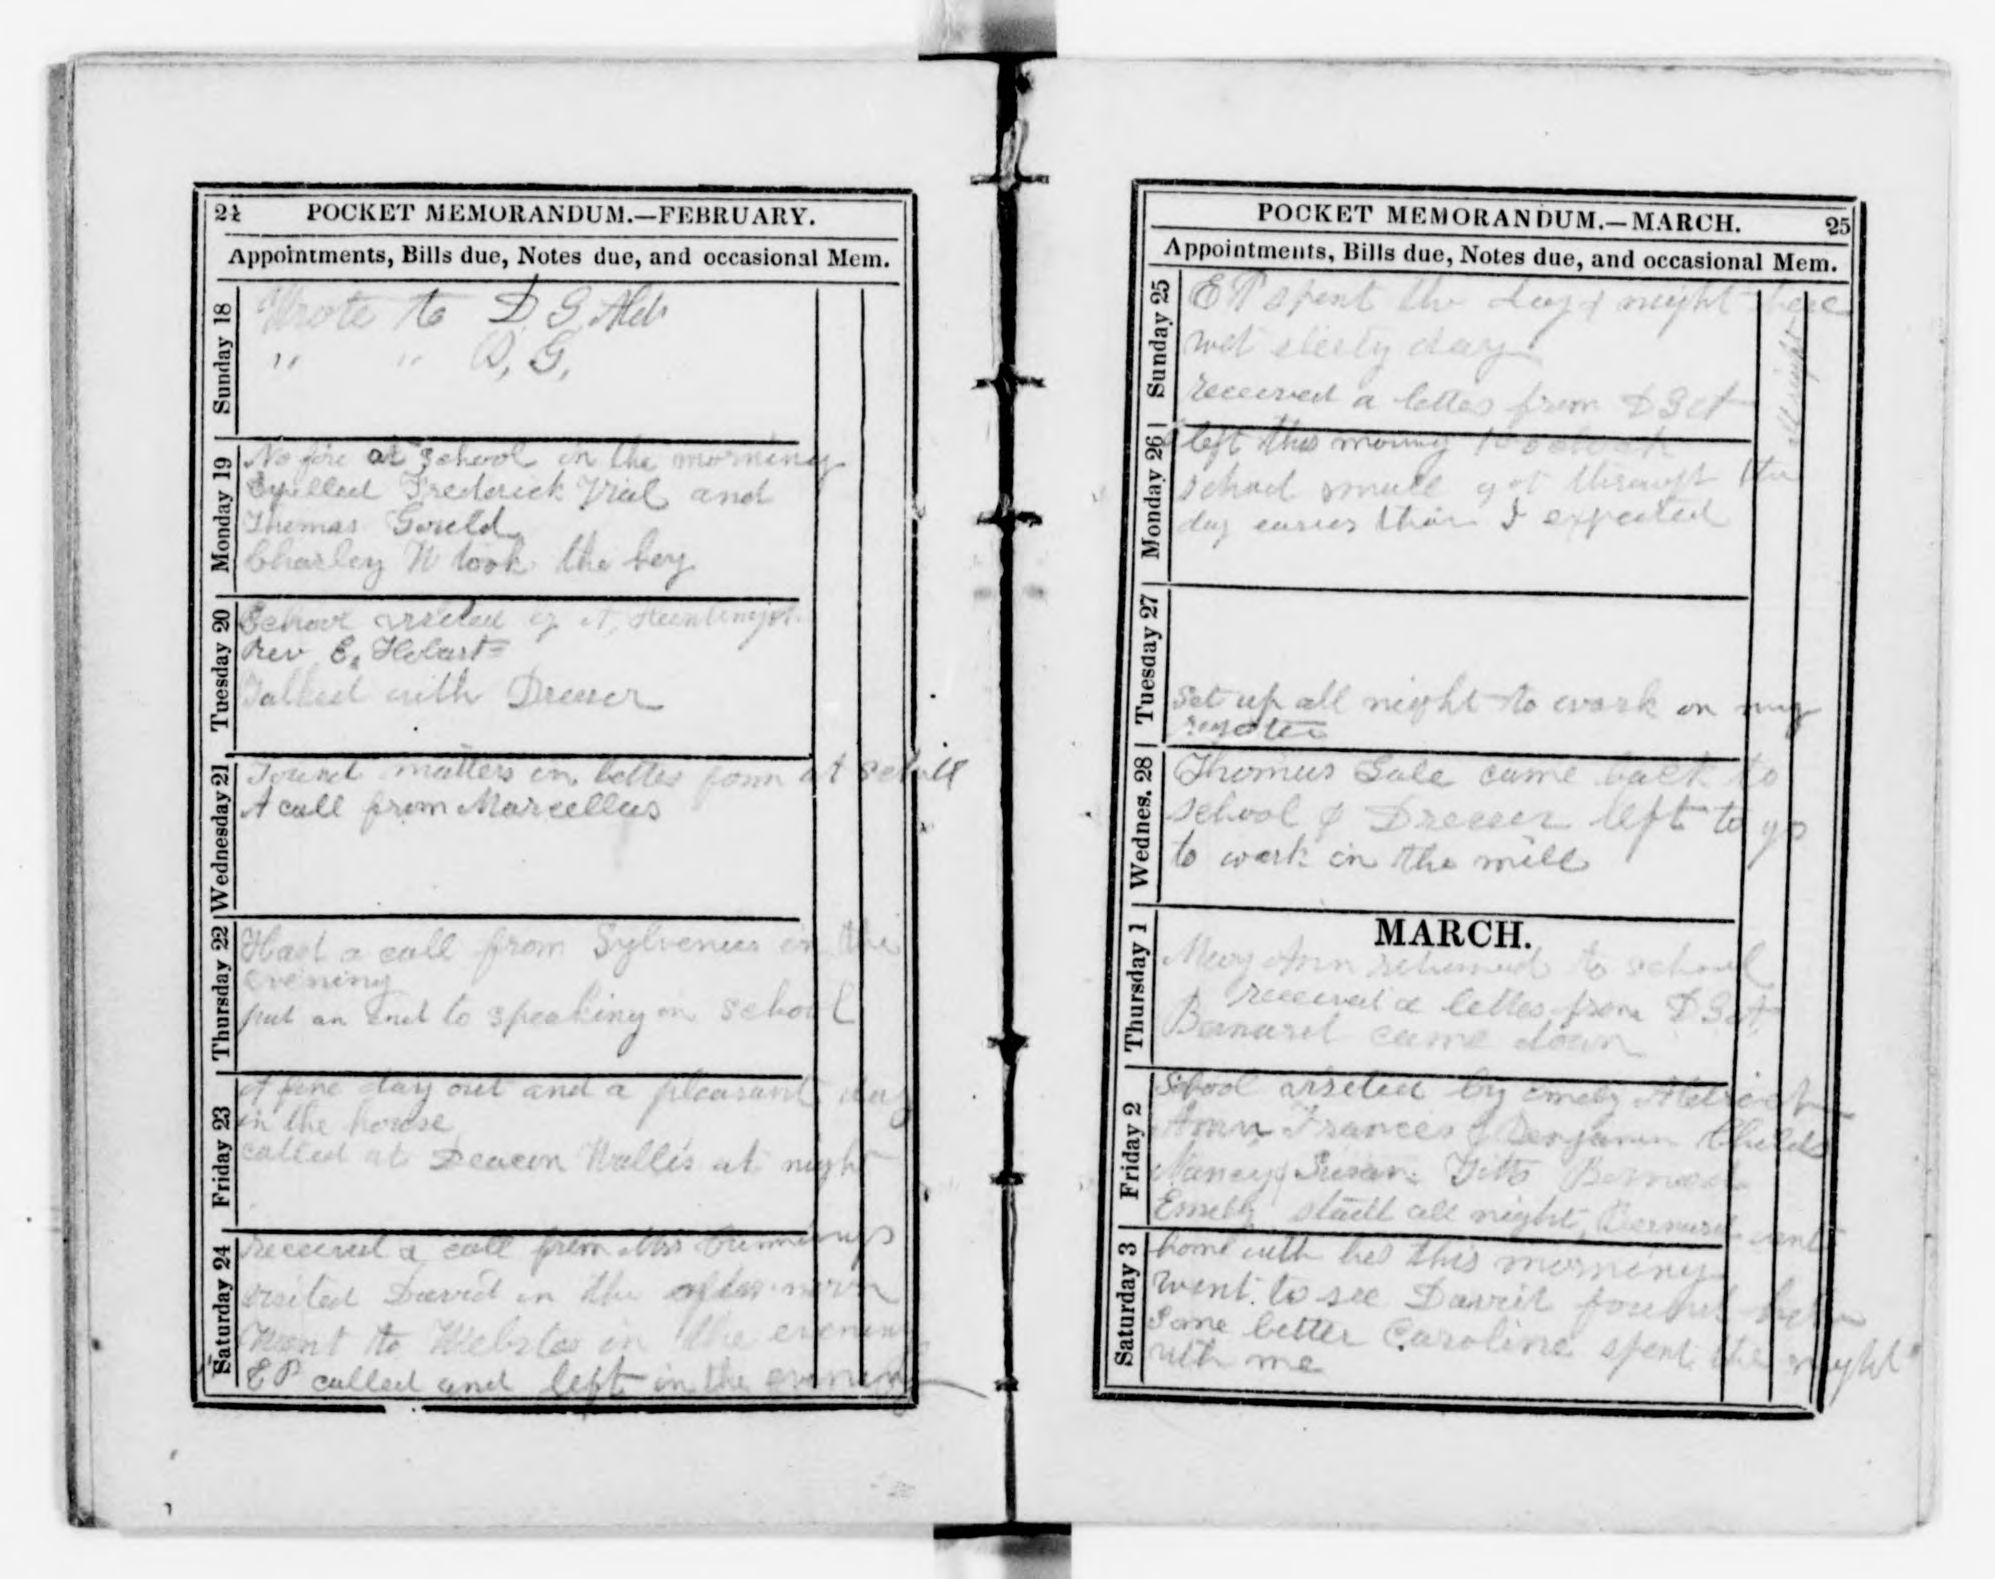 24 POCKET MEMORANDUM.—FEBRUARY.
Appointments, Bills due, Notes due, and occasional Mem.
Sunday 18
Wrote to D. G. Ald
" " D. G.
Monday 19
No fire at school in the morning
Expelled Frederick Vial and
Thomas Gould
Charley W took the key
Tuesday 20
School visited by A,
Rev E. Hobart
Talked with Dresser
Wednesday 21
Found matters in better form at school
A call from Marcellus
Thursday 22
Had a call from Sylvenus in the
evening
put an end to speaking in school
Friday 23
A fine day out and a pleasant day
in the house
called at Deacon Wallis at night
Saturday 24
received a call from Mrs Cummings
visited David in the afternoon
Went to Webster in the evening
E P called and left in the evening
POCKET MEMORANDUM.—MARCH. 25
Appointments, Bills due, Notes due, and occasional Mem.
Sunday 25
E P spent the day & night here
wet sleety day
received a letter from D
all night
Monday 26
left this morning 10 o clock
school small got through the
day easier than I expected
Tuesday 27
Set up all night to work on my
register
Wednes. 28
Thomas Gale came back to
school & Dresser left to go
to work in the mill
MARCH.
Thursday 1
Mary Ann returned to school
received a letter from D
Bernard came down
Friday 2
School visited by Emely Aldrich
Ann Frances & Benjamin Childs
Nancy & Susan Titts Bernard
Emely staid all night, Bernard went
Saturday 3
home with her this morning
went to see David found him
some better Caroline spent the night
with me